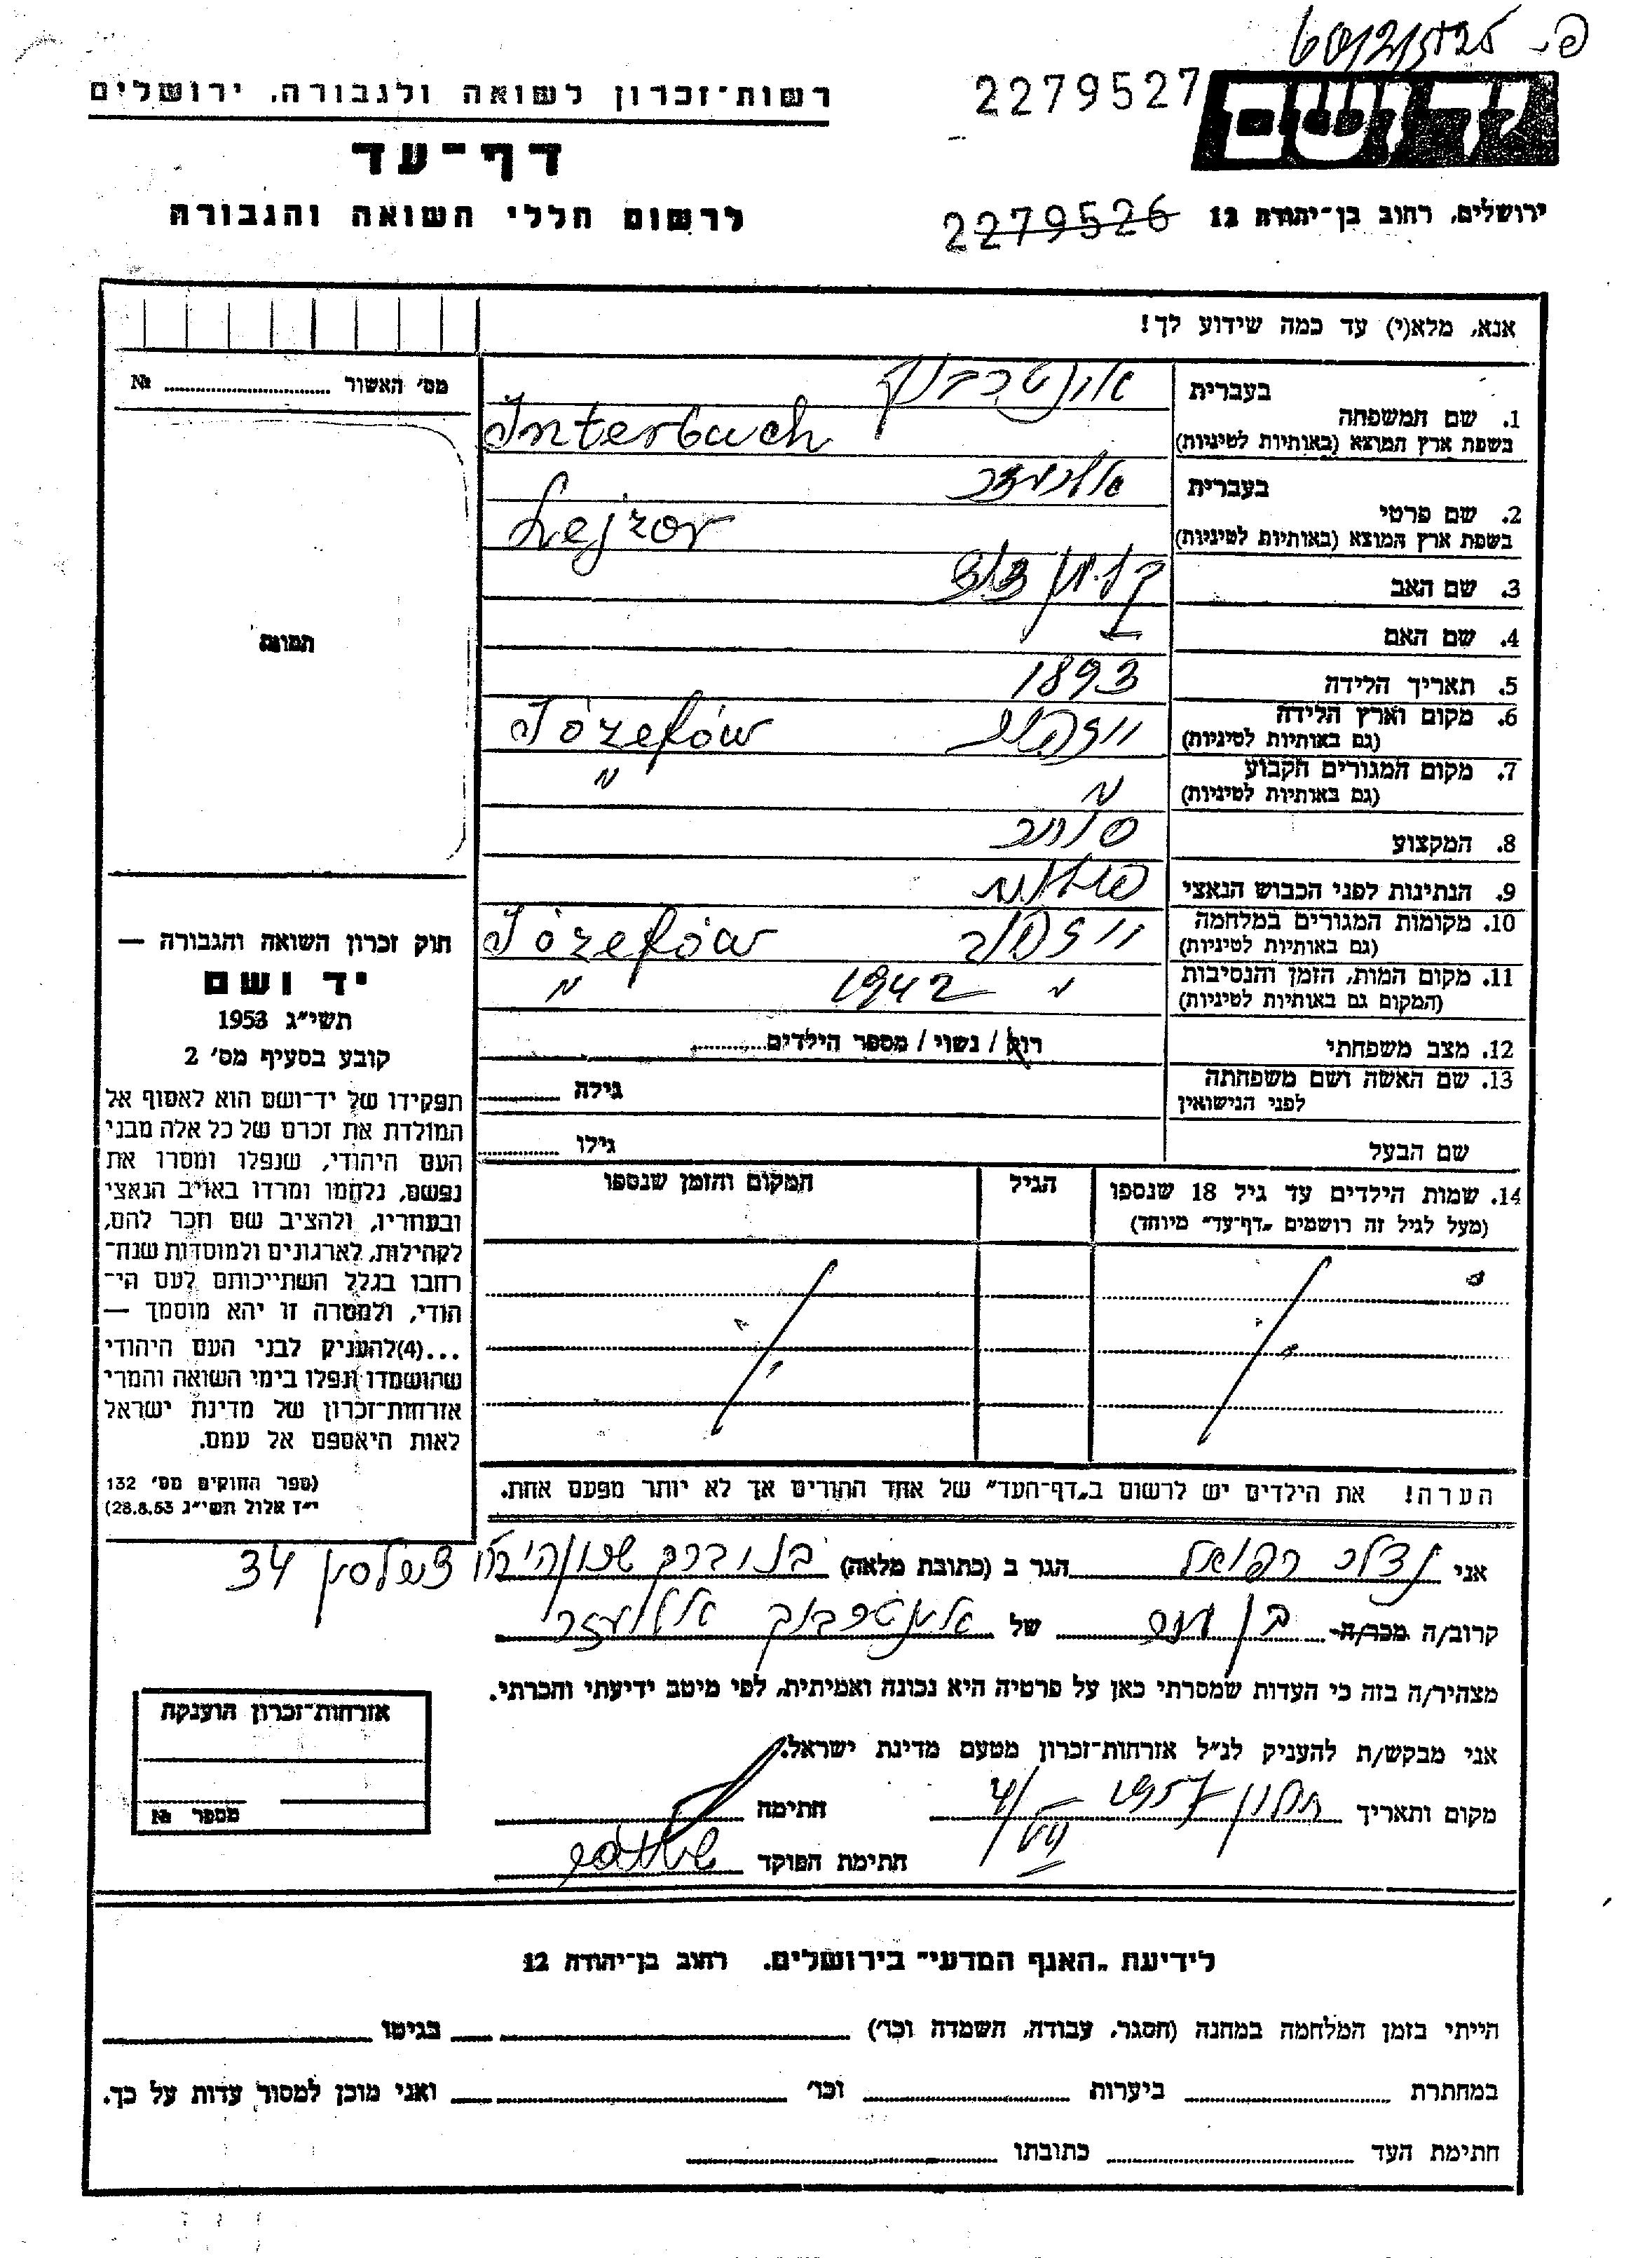 2279527
רשות־זכרון לשואה ולגבורה, ירושלים
יד ושם
דף־עד
ירושלים, רחוב בן־יהודה 12
2279526
לרשום חללי השואה והגבורה
אנא, מלא(י) עד כמה שידוע לך!
מס' האשור № 
1. שם המשפחה
בעברית אינטרבוך
בשפת ארץ המוצא (באותיות לטיניות) Interbuch
2. שם פרטי
בעברית אליעזר
בשפת ארץ המוצא (באותיות לטיניות) Lejzor
3. שם האב
4. שם האם —
5. תאריך הלידה 1893
6. מקום וארץ הלידה
(גם באותיות לטיניות) Józefów
7. מקום המגורים הקבוע
(גם באותיות לטיניות) " "
8. המקצוע סוחר
9. הנתינות לפני הכבוש הנאצי פולנית
10. מקומות המגורים במלחמה
(גם באותיות לטיניות) יוזפוב Józefów
11. מקום המות, הזמן והנסיבות
(המקום גם באותיות לטיניות) " 1942 "
12. מצב משפחתי רוק / נשוי / מספר הילדים
13. שם האשה ושם משפחתה
לפני הנישואין גילה
שם הבעל גילו
14. שמות הילדים עד גיל 18 שנספו
(מעל לגיל זה רושמים „דף־עד" מיוחד)
הגיל
המקום והזמן שנספו
הערה! את הילדים יש לרשום ב„דף־העד" של אחד ההורים אך לא יותר מפעם אחת.
תמונה
חוק זכרון השואה והגבורה —
יד ושם
תשי"ג 1953
קובע בסעיף מס' 2
תפקידו של יד־ושם הוא לאסוף אל
המולדת את זכרם של כל אלה מבני
העם היהודי, שנפלו ומסרו את
נפשם, נלחמו ומרדו באויב הנאצי
ובעוזריו, ולהציב שם וזכר להם,
לקהילות, לארגונים ולמוסדות שנח־
רחבו בגלל השתייכותם לעם הי־
הודי, ולמטרה זו יהא מוסמך —
...(4)להעניק לבני העם היהודי
שהושמדו ונפלו בימי השואה והמרי
אזרחות־זכרון של מדינת ישראל
לאות היאספם אל עמם.
(ספר החוקים מס' 132
י"ז אלול תשי"ג 28.8.53)
אני רפואל הגר ב (כתובת מלאה) בני ברק 34
קרוב/ה מכר/ה בן דוד של אינטרבוך אליעזר
מצהיר/ה בזה כי העדות שמסרתי כאן על פרטיה היא נכונה ואמיתית, לפי מיטב ידיעתי והכרתי.
אני מבקש/ת להעניק לנ"ל אזרחות־זכרון מטעם מדינת ישראל.
מקום ותאריך חולון 1957 חתימה
חתימת הפוקד
אזרחות־זכרון הוענקה
מספר №
לידיעת „האגף המדעי" בירושלים. רחוב בן־יהודה 12
הייתי בזמן המלחמה במחנה (הסגר, עבודה, השמדה וכו') בגיטו
במחתרת ביערות וכו' ואני מוכן למסור עדות על כך.
חתימת העד כתובתו